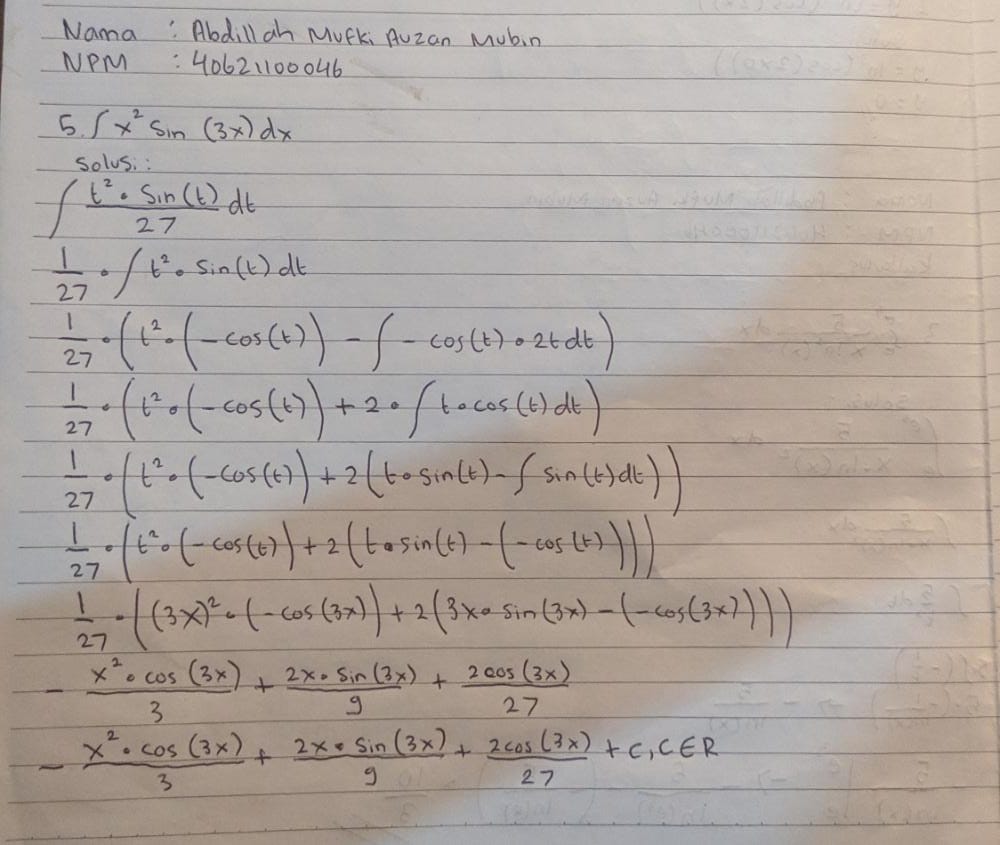 Nama : Abdillah Mufki Auzan Mubin
NPM : 40621100046
5. ∫ x² sin (3x) dx
Solusi :
∫ t² • sin(t) / 27 dt
1/27 • ∫ t² • sin(t) dt
1/27 • (t² • (-cos(t)) - ∫ - cos(t) • 2t dt)
1/27 • (t² • (-cos(t)) + 2 • ∫ t • cos(t) dt)
1/27 • (t² • (-cos(t)) + 2(t • sin(t) - ∫ sin(t) dt))
1/27 • (t² • (-cos(t)) + 2(t • sin(t) - (-cos(t))))
1/27 • ((3x)² • (-cos(3x)) + 2(3x • sin(3x) - (-cos(3x))))
- x² • cos(3x) / 3 + 2x • sin(3x) / 9 + 2cos(3x) / 27
- x² • cos(3x) / 3 + 2x • sin(3x) / 9 + 2cos(3x) / 27 + C, C ∈ R